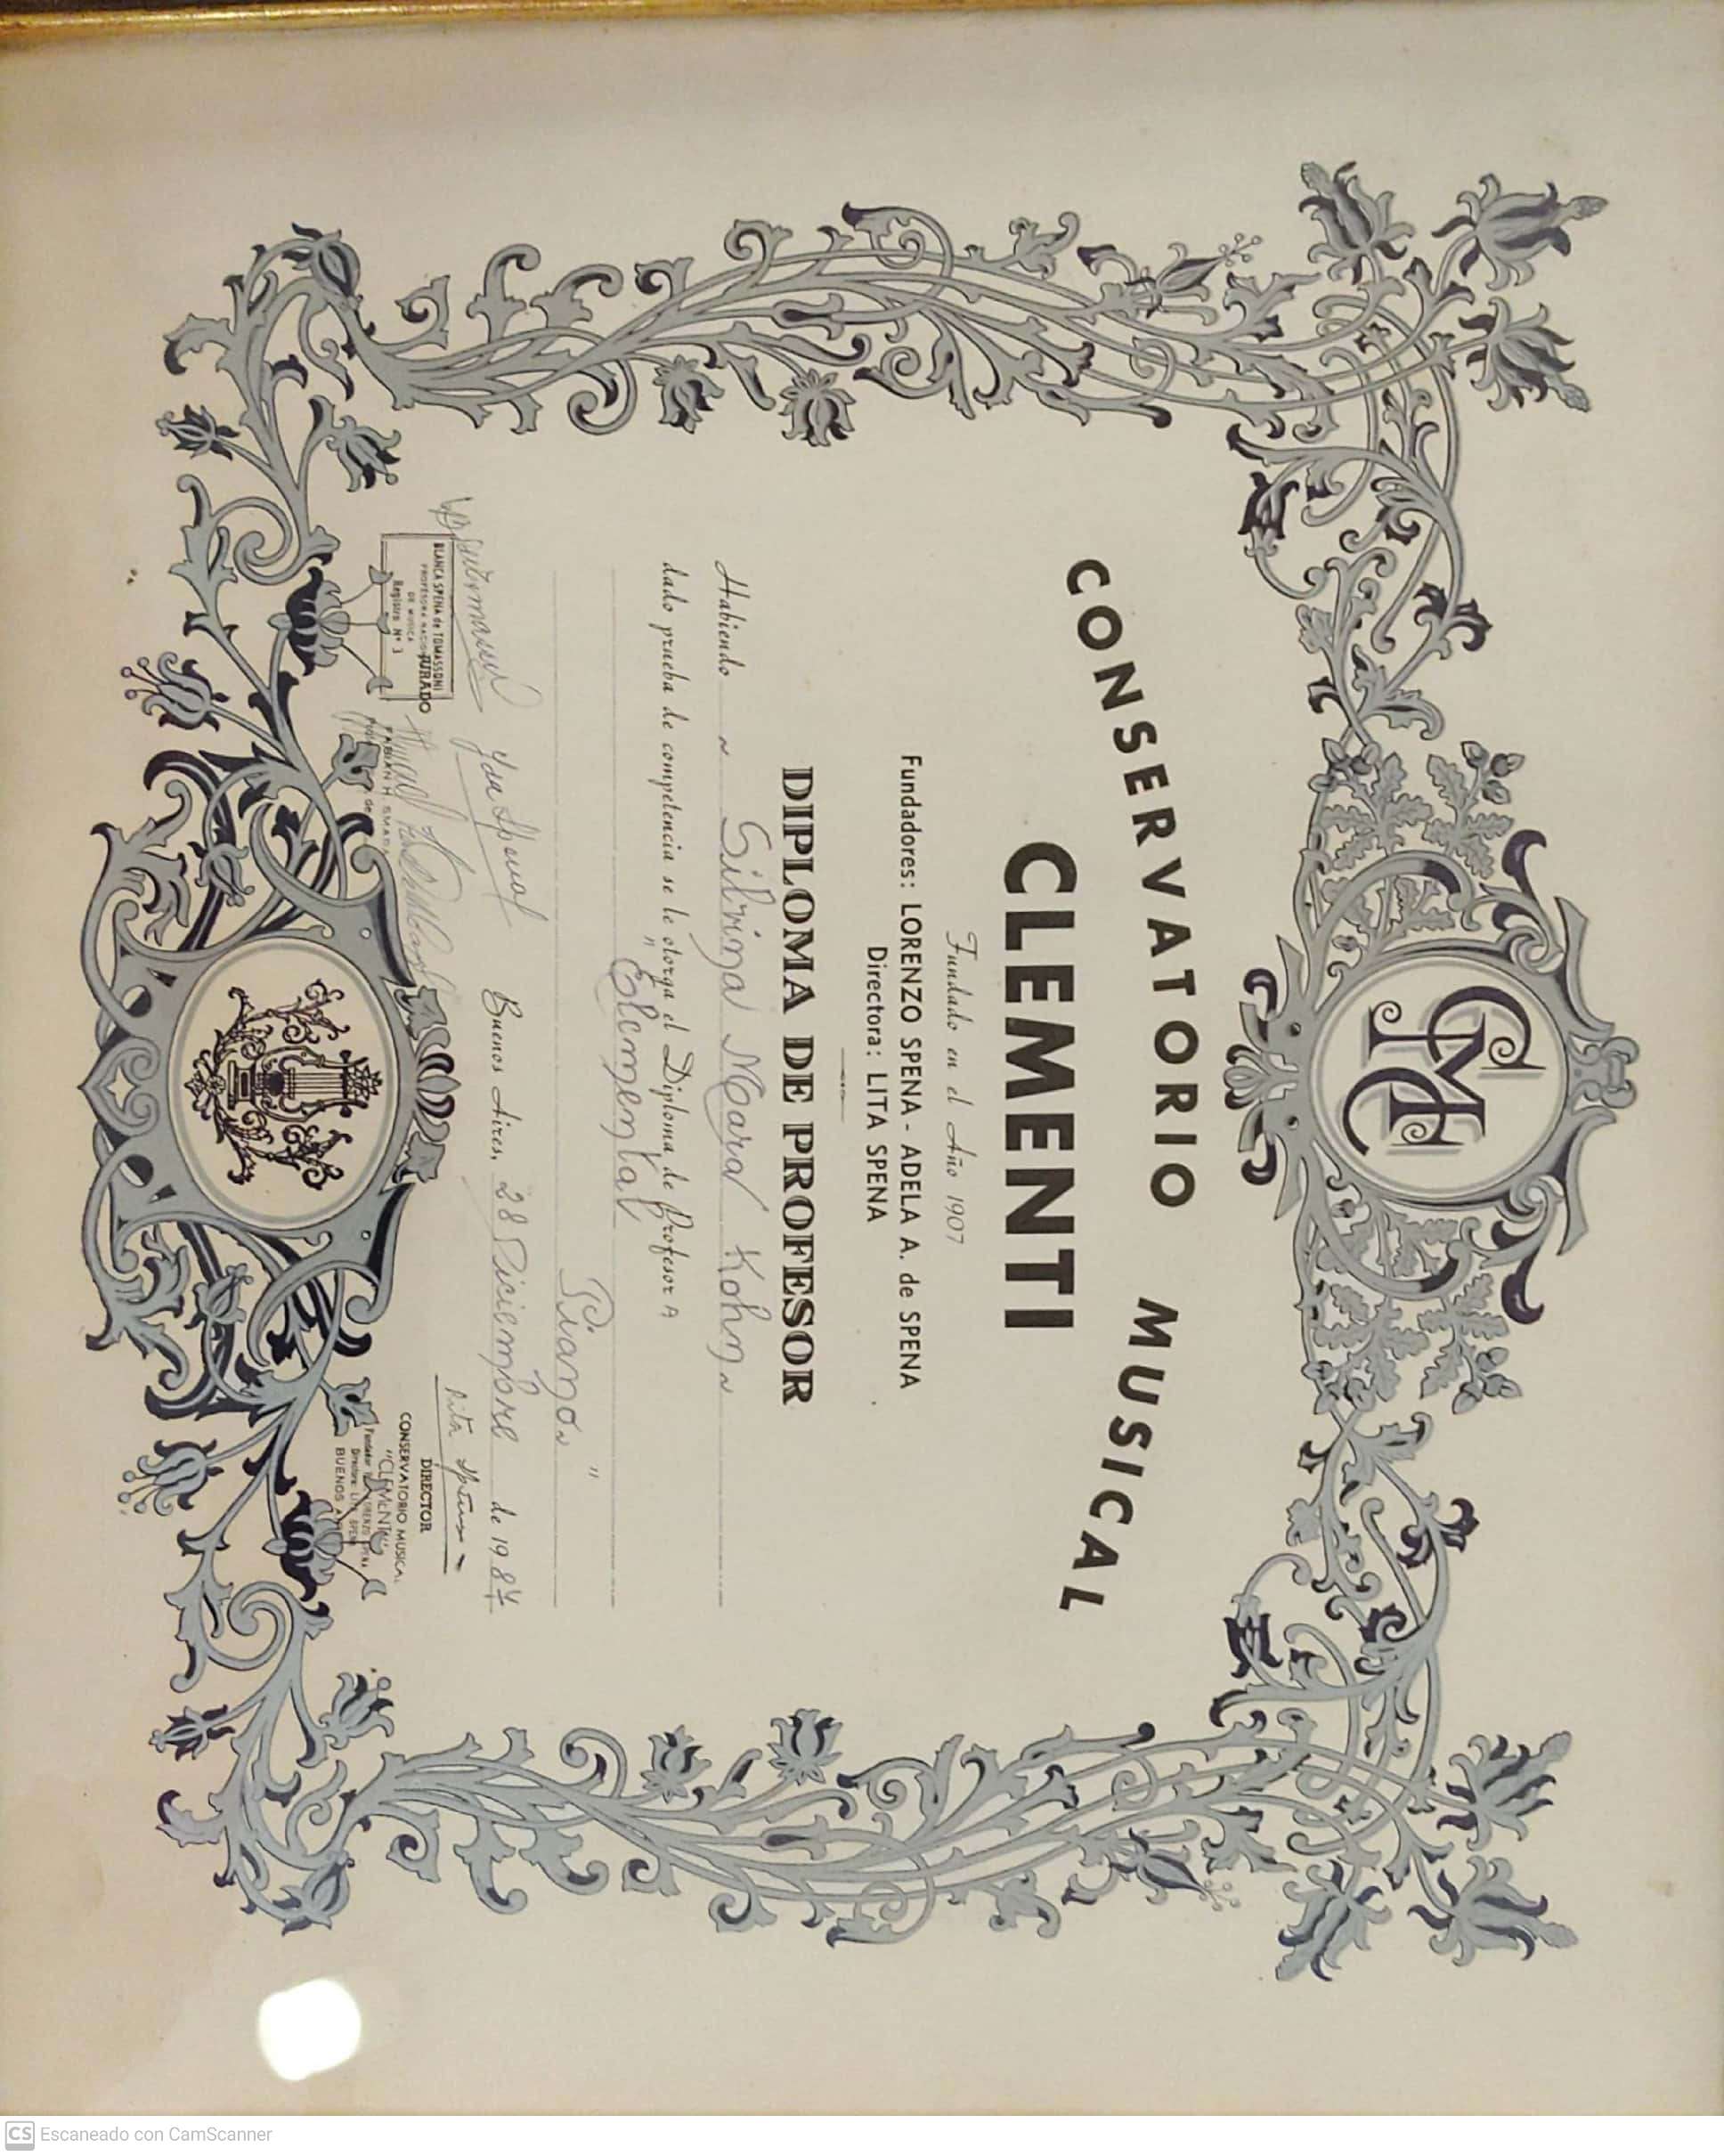 CMC
CONSERVATORIO MUSICAL
CLEMENTI
Fundado en el Año 1907
Fundadores: LORENZO SPENA - ADELA A. de SPENA
Directora: LITA SPENA
DIPLOMA DE PROFESOR
Habiendo ~ Silvina Mara Kohn ~
dado prueba de competencia se le otorga el Diploma de Profesor A
"Elemental
Piano"
Buenos Aires, 28 Diciembre de 1987
BLANCA SPENA de TOMASSONI
PROFESORA NACIONAL
DE MUSICA
Registro Nº 3
JURADO
FABIAN H. SMARA
DIRECTOR
CONSERVATORIO MUSICAL
"CLEMENTI"
Fundador LORENZO SPENA
Directora: LITA SPENA
BUENOS AIRES
CS Escaneado con CamScanner